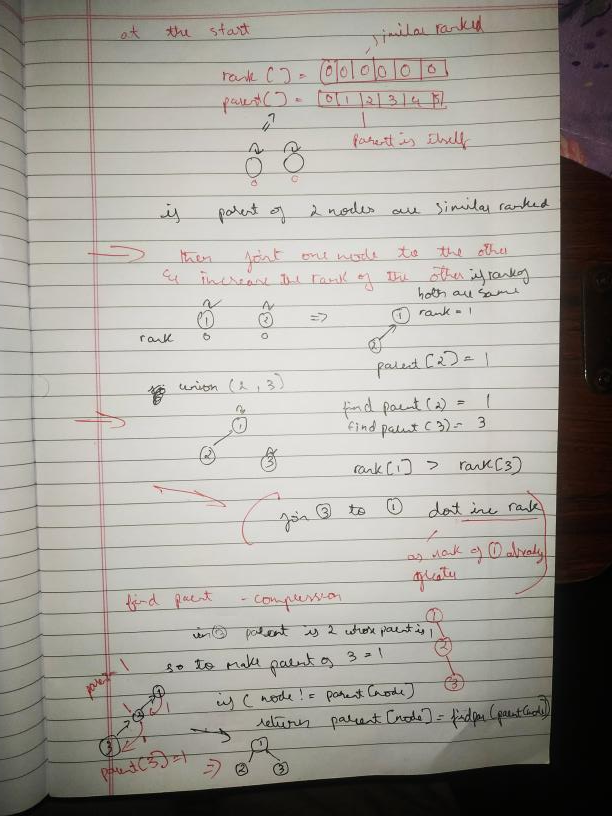 at the start
similar ranked
rank[] = [0|0|0|0|0|0]
parent[] = [0|1|2|3|4|5]
parent is itself
0 0
is parent of 2 nodes are similar ranked
then joint one node to the other
& increase the rank of the other if rank of
both are same
1 2 => 1 rank = 1
rank 0 0
2
parent[2] = 1
union (2,3)
find parent(2) = 1
find parent(3) = 3
1
2 3
rank[1] > rank[3]
join 3 to 1 dont inc rank
as rank of 1 already
greater
find parent - compression
1
in 3 parent is 2 whose parent is 1
2
so to make parent of 3 = 1
3
parent 1
1
2
if ( node != parent[node]
return parent[node] = findpar(parent[node])
3
parent(3) = 1
=>
1
2 3